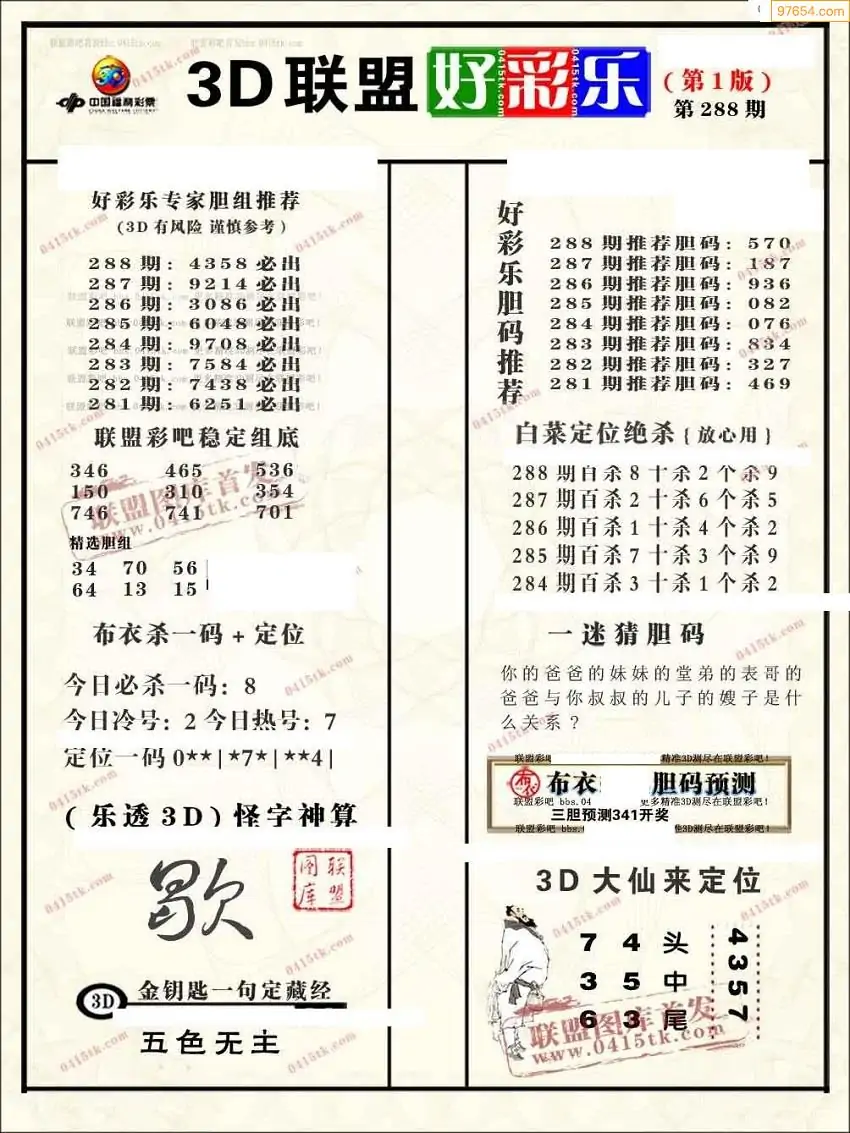 97654.com
中国福利彩票
CHINA WELFARE LOTTERY
3D联盟好彩乐
(第1版)
第288期
好彩乐专家胆组推荐
(3D有风险 谨慎参考)
288期: 4358必出
287期: 9214必出
286期: 3086必出
285期: 6048必出
284期: 9708必出
283期: 7584必出
282期: 7438必出
281期: 6251必出
联盟彩吧稳定组底
346 465 536
150 310 354
746 741 701
精选胆组
34 70 56
64 13 15
布衣杀一码+定位
今日必杀一码: 8
今日冷号: 2 今日热号: 7
定位一码 0**|*7*|**4|
(乐透3D)怪字神算
歇
联盟图库
3D 金钥匙一句定藏经
五色无主
好彩乐胆码推荐
288期推荐胆码: 570
287期推荐胆码: 187
286期推荐胆码: 936
285期推荐胆码: 082
284期推荐胆码: 076
283期推荐胆码: 834
282期推荐胆码: 327
281期推荐胆码: 469
白菜定位绝杀{放心用}
288期百杀8十杀2个杀9
287期百杀2十杀6个杀5
286期百杀1十杀4个杀2
285期百杀7十杀3个杀9
284期百杀3十杀1个杀2
一迷猜胆码
你的爸爸的妹妹的堂弟的表哥的
爸爸与你叔叔的儿子的嫂子是什
么关系?
联盟彩 精准3D测尽在联盟彩吧!
布衣 布衣 胆码预测
联盟彩吧 bbs.04 更多精准3D测尽在联盟彩吧!
三胆预测341开奖
联盟彩吧 bbs. 3D测尽在联盟彩吧!
3D大仙来定位
7 4 头
3 5 中
6 3 尾
4357
联盟图库首发
www.0415tk.com
联盟图库首发
www.0415tk.com
0415tk.com